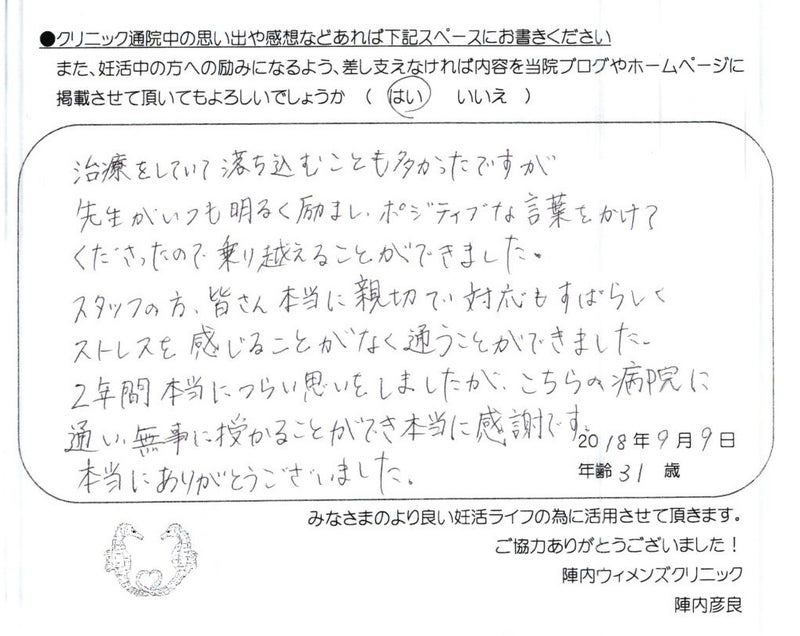 ●クリニック通院中の思い出や感想などあれば下記スペースにお書きください
また、妊活中の方への励みになるよう、差し支えなければ内容を当院ブログやホームページに
掲載させて頂いてもよろしいでしょうか （ はい　いいえ ）
治療をしていて落ち込むことも多かったですが
先生がいつも明るく励まし、ポジティブな言葉をかけて
くださったので乗り越えることができました。
スタッフの方、皆さん本当に親切で対応もすばらしく
ストレスを感じることがなく通うことができました。
2年間本当につらい思いをしましたが、こちらの病院に
通い、無事に授かることができ本当に感謝です。
本当にありがとうございました。
2018年9月9日
年齢 31 歳
みなさまのより良い妊活ライフの為に活用させて頂きます。
ご協力ありがとうございました！
陣内ウィメンズクリニック
陣内彦良